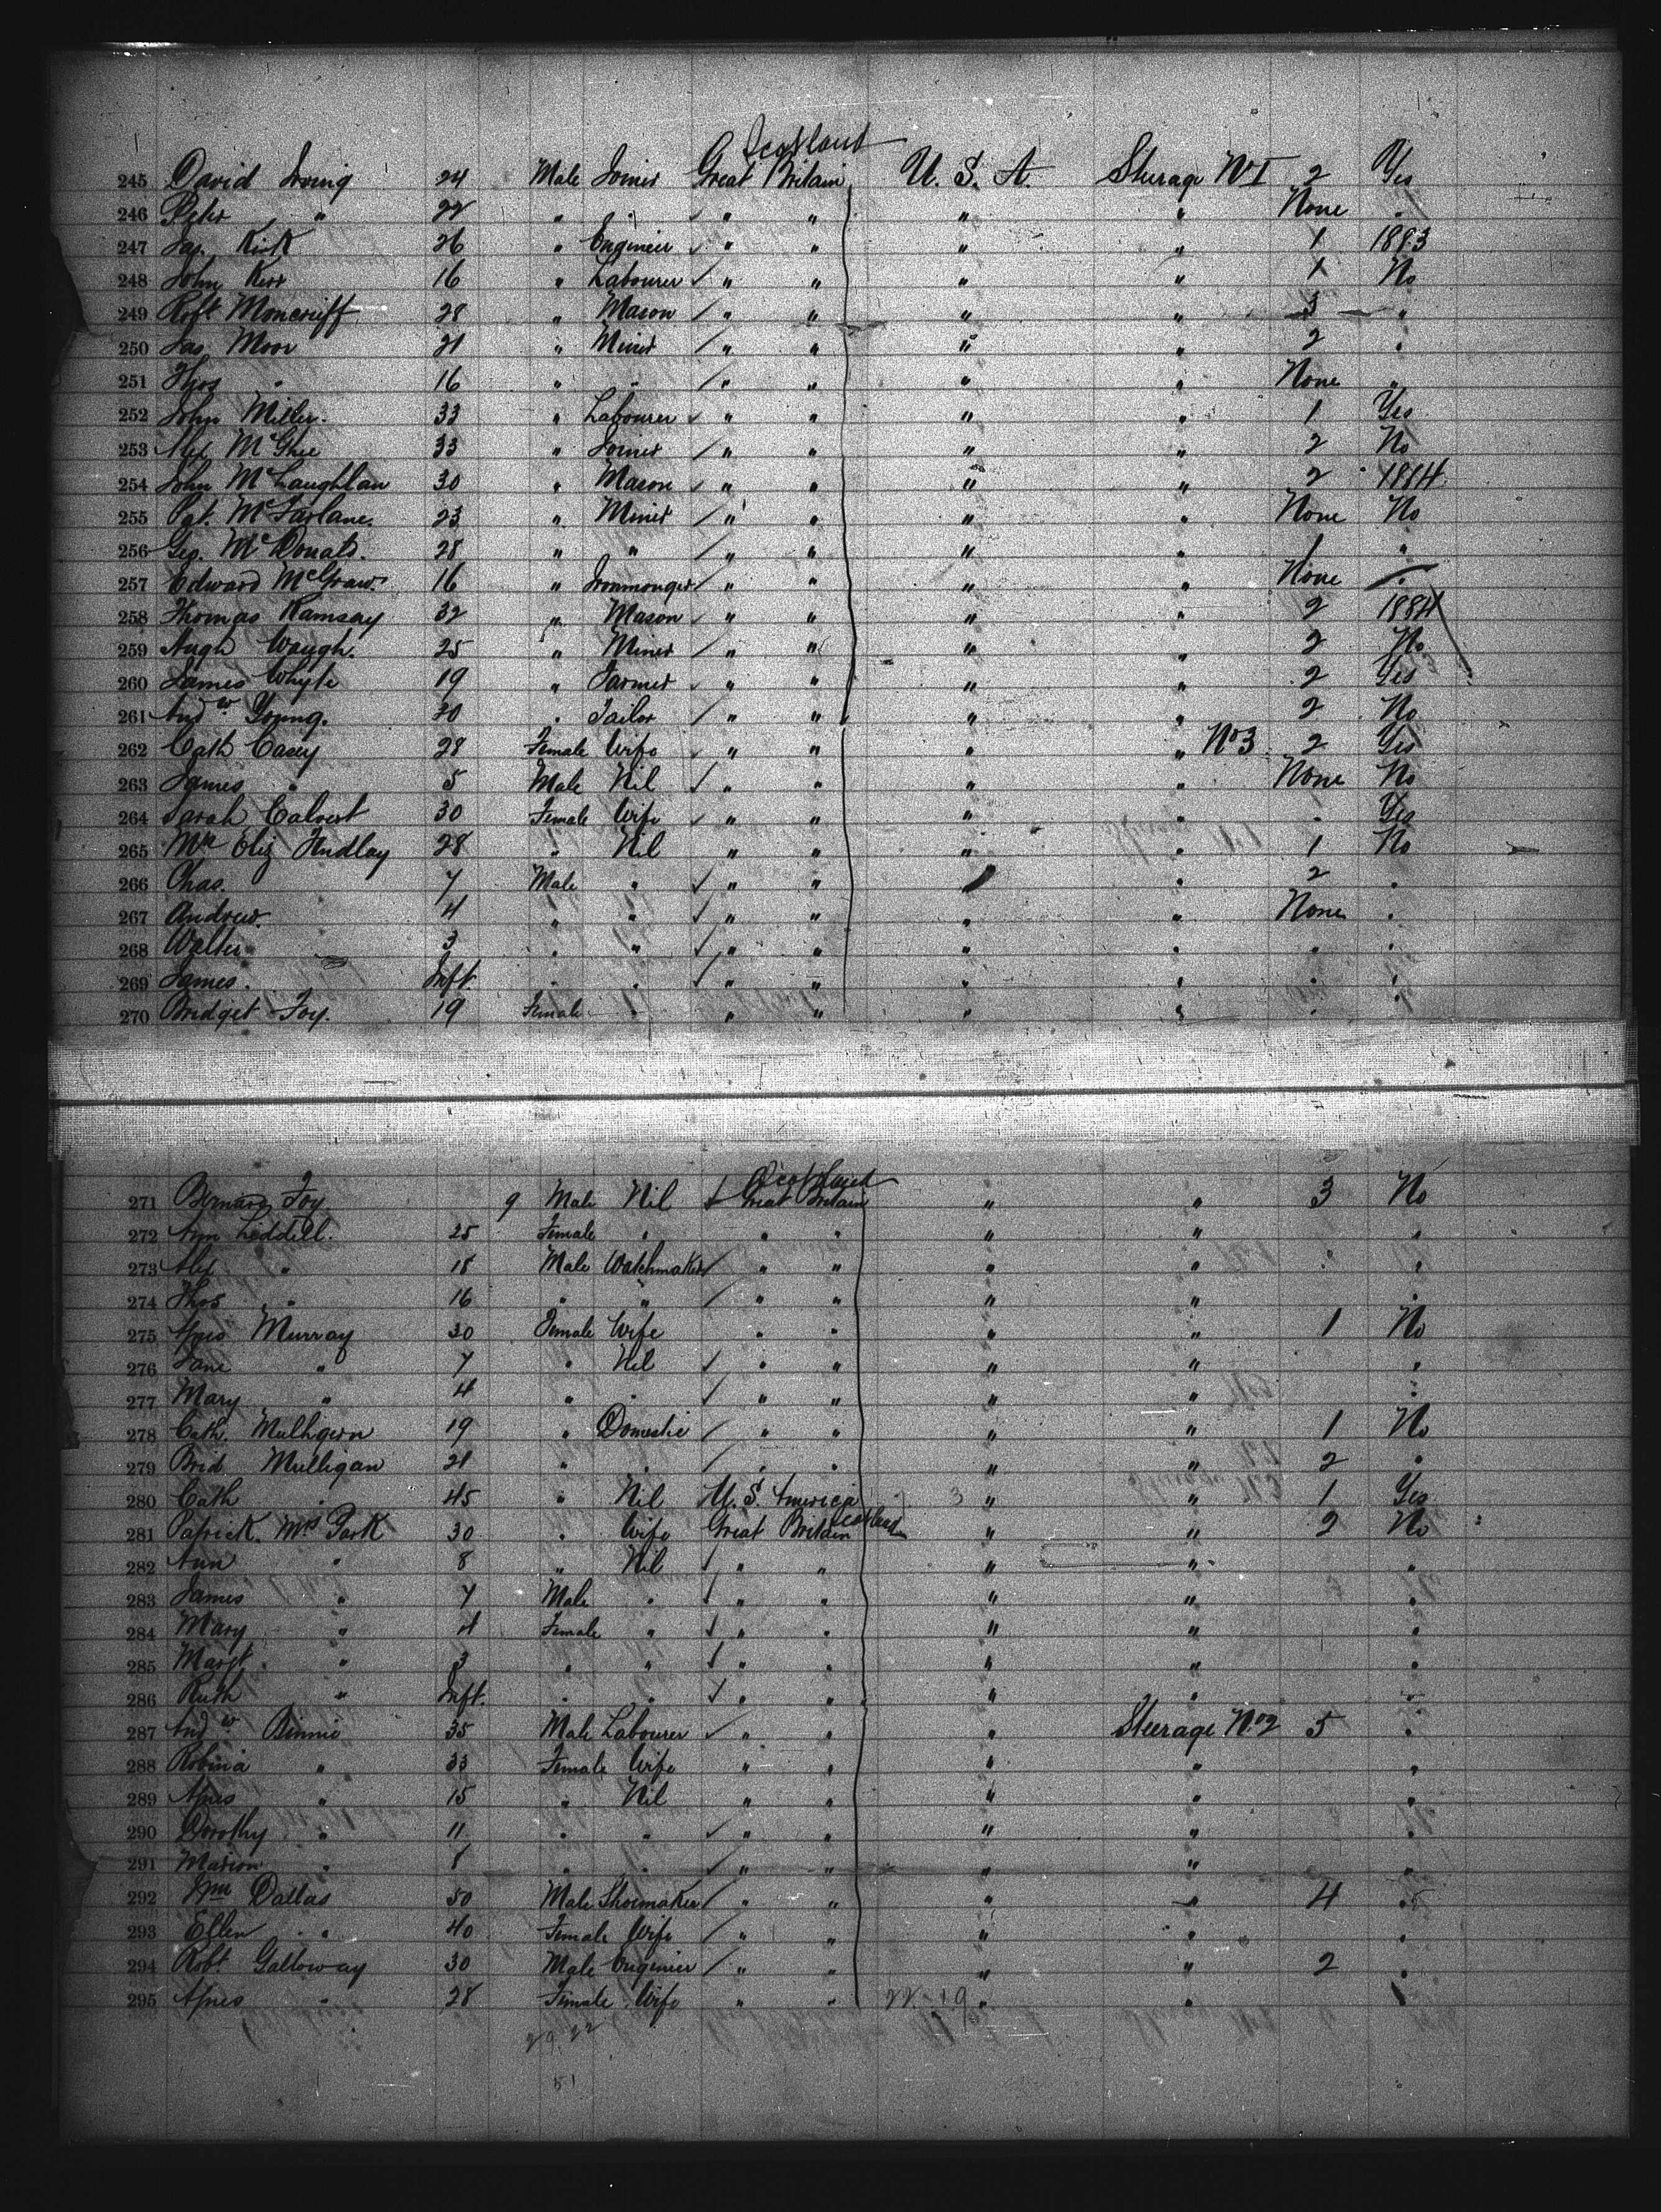 Scotland
245 David Irving 24 Male Joiner Great Britain U. S. A. Steerage No I 2 Yes
246 Peter " 22 " " " " " " None "
247 Jas. Kirk 26 " Engineer " " " " 1 1883
248 John Kerr 16 " Labourer " " " " 1 No
249 Robt Moncrieff 28 " Mason " " " " 3 "
250 Jas Moor 21 " Miner " " " " 2 "
251 Thos " 16 " " " " " " None "
252 John Miller. 33 " Labourer " " " " 1 Yes
253 Alex McGhee 33 " Joiner " " " " 2 No
254 John McLaughlan 30 " Mason " " " " 2 1884
255 Pat. McFarlane. 23 " Miner " " " " None No
256 Geo. McDonald. 28 " " " " " " 1 "
257 Edward McGraw. 16 " Ironmonger " " " " None "
258 Thomas Ramsay 32 " Mason " " " " 2 1884
259 Hugh Waugh. 25 " Miner " " " " 2 No
260 James Whyte 19 " Farmer " " " " 2 Yes
261 Andw Young. 30 " Tailor " " " " 2 No
262 Cath Casey 28 Female Wife " " " " No 3 2 Yes
263 James " 5 Male Nil " " " " None No
264 Sarah Calvert 30 Female Wife " " " " " Yes
265 Mrs Eliz Findlay 28 " Nil " " " " 1 No
266 Chas. 7 Male " " " " " 2 "
267 Andrew. 4 " " " " " " None "
268 Walter 3 " " " " " " " "
269 James. Inft. " " " " " " " "
270 Bridget Foy. 19 Female " " " " " " "
Scotland
271 Bernard Foy 9 Male Nil Great Britain " " 3 No
272 Ann Liddell. 25 Female " " " " " "
273 Alex " 18 Male Watchmaker " " " " " "
274 Thos " 16 " " " " " " "
275 Agnes Murray 30 Female Wife " " " " 1 No
276 Jane " 7 " Nil " " " " "
277 Mary " 4 " " " " " " "
278 Cath. Mulhgern 19 " Domestic " " " " 1 No
279 Brid Mulligan 21 " " " " " " 2 "
280 Cath " 45 " Nil U. S. America " " 1 Yes
281 Patrick. Mrs Park 30 " Wife Great Britain Scotland " " 2 No
282 Ann " 8 " Nil " " " " "
283 James " 7 Male " " " " " "
284 Mary " 4 Female " " " " " "
285 Margt. " 3 " " " " " " "
286 Ruth " Inft. " " " " " " "
287 Andw Binnie 35 Male Labourer " " " Steerage No 2 5 "
288 Robina " 33 Female Wife " " " " "
289 Agnes " 15 " Nil " " " " "
290 Dorothy " 11 " " " " " " "
291 Marion " 8 " " " " " " "
292 Wm Dallas 50 Male Shoemaker " " " " 4 "
293 Ellen " 40 Female Wife " " " " "
294 Robt Galloway 30 Male Engineer " " " " 2 "
295 Agnes " 28 Female Wife " " " " "
22-19
29.22
51